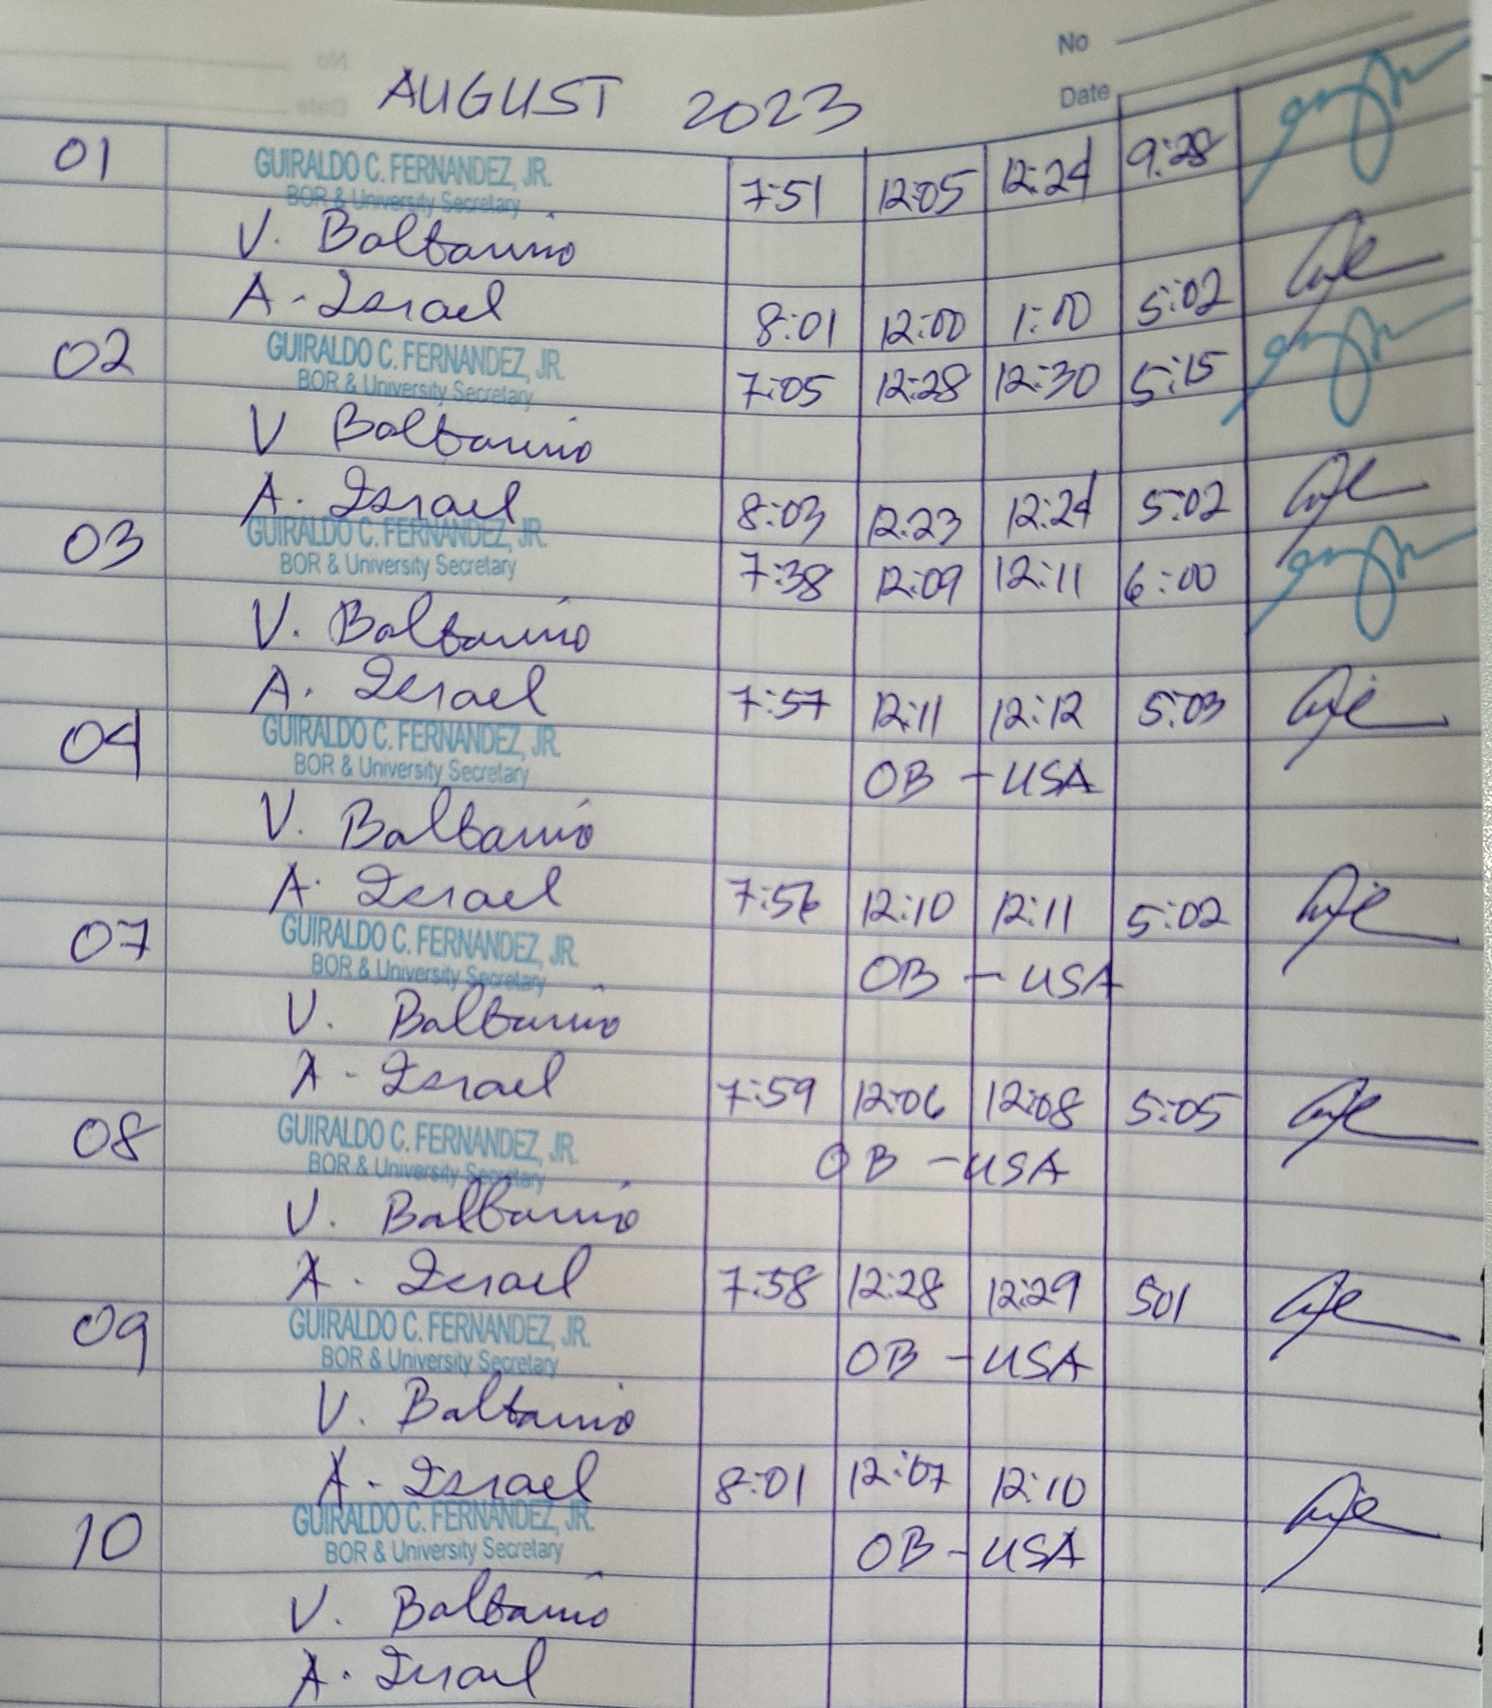 No
Date
AUGUST 2023
01 GUIRALDO C. FERNANDEZ, JR. 7:51 12:05 12:24 9:28
BOR & University Secretary
V. Balbarino
A. Israel 8:01 12:00 1:00 5:02
02 GUIRALDO C. FERNANDEZ, JR. 7:05 12:28 12:30 5:15
BOR & University Secretary
V Balbarino
A. Israel 8:03 12:23 12:24 5:02
03 GUIRALDO C. FERNANDEZ, JR. 7:38 12:09 12:11 6:00
BOR & University Secretary
V. Balbarino
A. Israel 7:57 12:11 12:12 5:03
04 GUIRALDO C. FERNANDEZ, JR.
BOR & University Secretary OB - USA
V. Balbarino
A. Israel 7:56 12:10 12:11 5:02
07 GUIRALDO C. FERNANDEZ, JR.
BOR & University Secretary OB - USA
V. Balbarino
A. Israel 7:59 12:06 12:08 5:05
08 GUIRALDO C. FERNANDEZ, JR.
BOR & University Secretary OB - USA
V. Balbarino
A. Israel 7:58 12:28 12:29 501
09 GUIRALDO C. FERNANDEZ, JR.
BOR & University Secretary OB - USA
V. Balbarino
A. Israel 8:01 12:07 12:10
10 GUIRALDO C. FERNANDEZ, JR.
BOR & University Secretary OB - USA
V. Balbarino
A. Israel